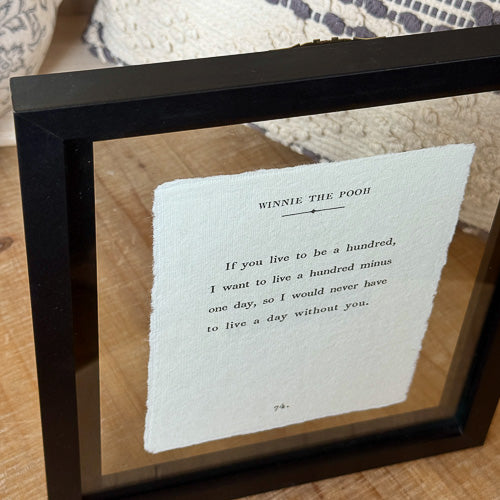 WINNIE THE POOH
If you live to be a hundred,
I want to live a hundred minus
one day, so I would never have
to live a day without you.
74.